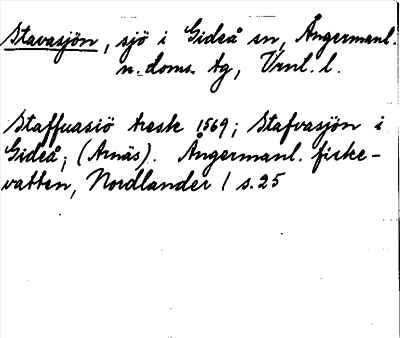 Stavasjön, sjö i Gideå sn, Ångermanl.
n. doms. tg, Vrnl. l.
Staffuasiö tresk 1569; Stafvasjön i
Gideå; (Arnäs). Ångermanl. fiske-
vatten, Nordlander 1 s. 25